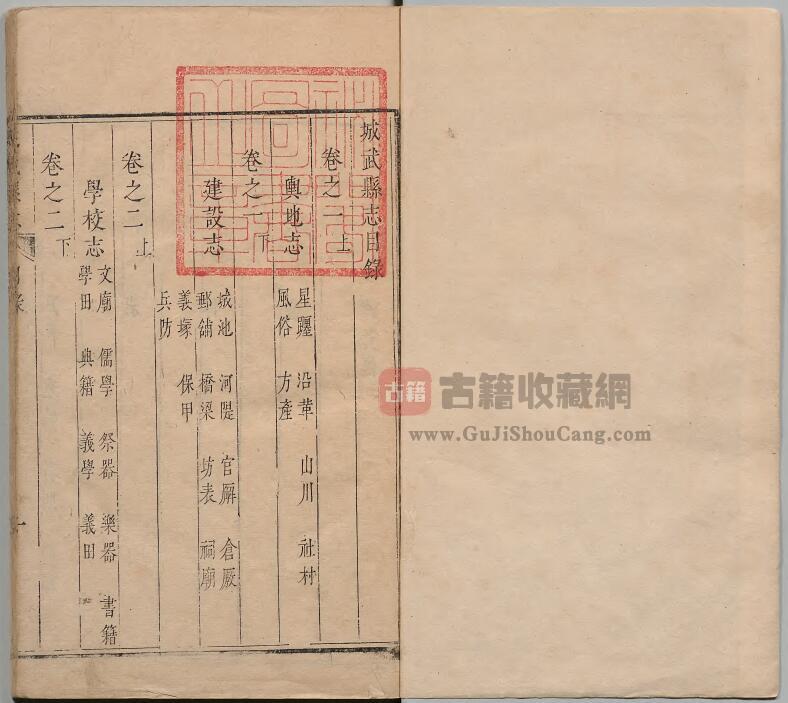 城武縣志目錄
卷之一上
輿地志
星躔 沿革 山川 社村
風俗 方產
卷之一下
建設志
城池 河隄 官廨 倉厫
郵舖 橋梁 坊表 祠廟
義塚 保甲
兵防
卷之二上
學校志
文廟 儒學 祭器 樂器 書籍
學田 典籍 義學 義田
卷之二下
古籍 古籍收藏網
www.GuJiShouCang.com